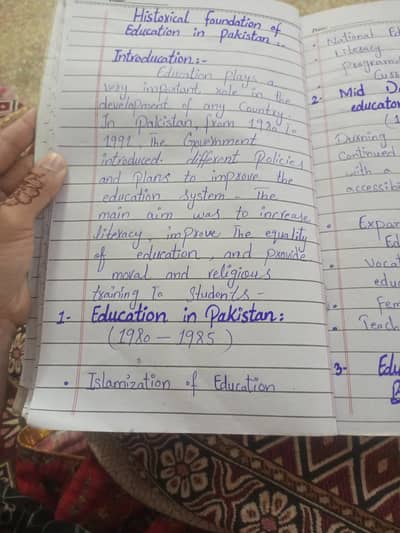 Historical foundation of
Education in Pakistan :-
Introducation :-
Education plays a
very important role in the
development of any Country.
In Pakistan, from 1980 To
1991, The Government
introduced different Policies
and Plans to improve the
education system - The
main aim was to increase
literacy, improve The equality
of education, and provide
moral and religious
training To Students -
1- Education in Pakistan:
(1980 - 1985)
• Islamization of Education
• National
Literacy
Programm
2- Mid
educaton
(1
Durning
Continued
with a
accessib
• Expan
Ed
• Vocat
educ
• Fem
• Teach
3- Edu